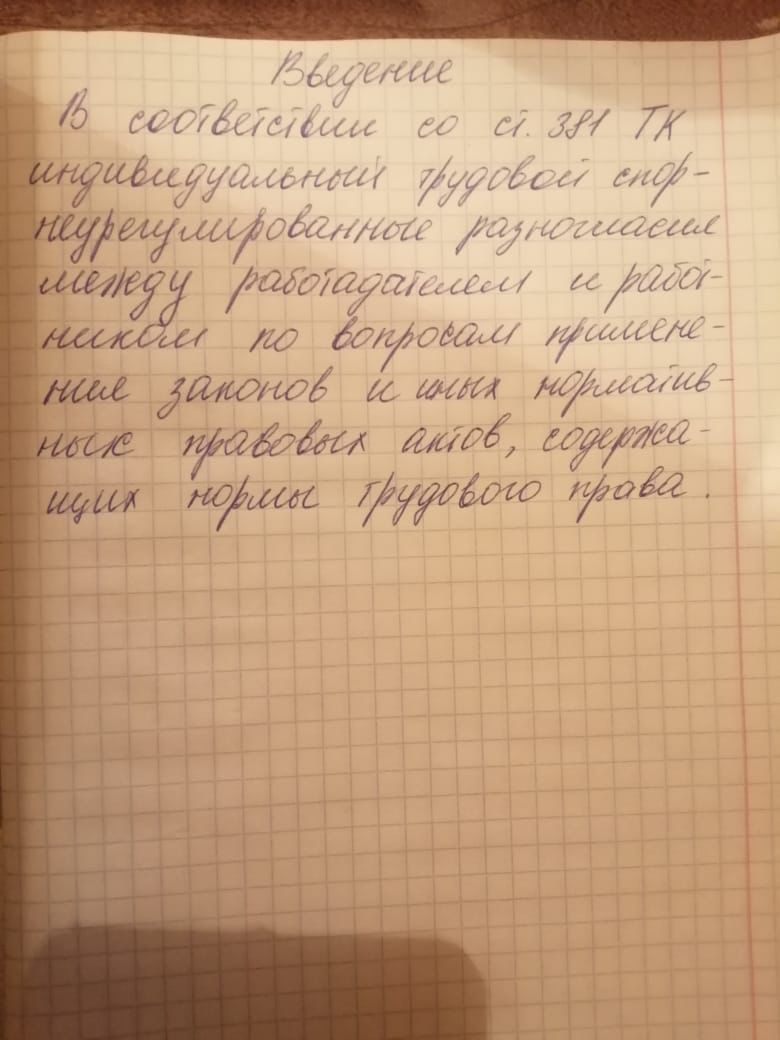 Введение
В соответствии со ст. 381 ТК
индивидуальный трудовой спор-
неурегулированные разногласия
между работадателем и работ-
ником по вопросам примене-
ния законов и иных норматив-
ных правовых актов, содержа-
щих нормы трудового права.